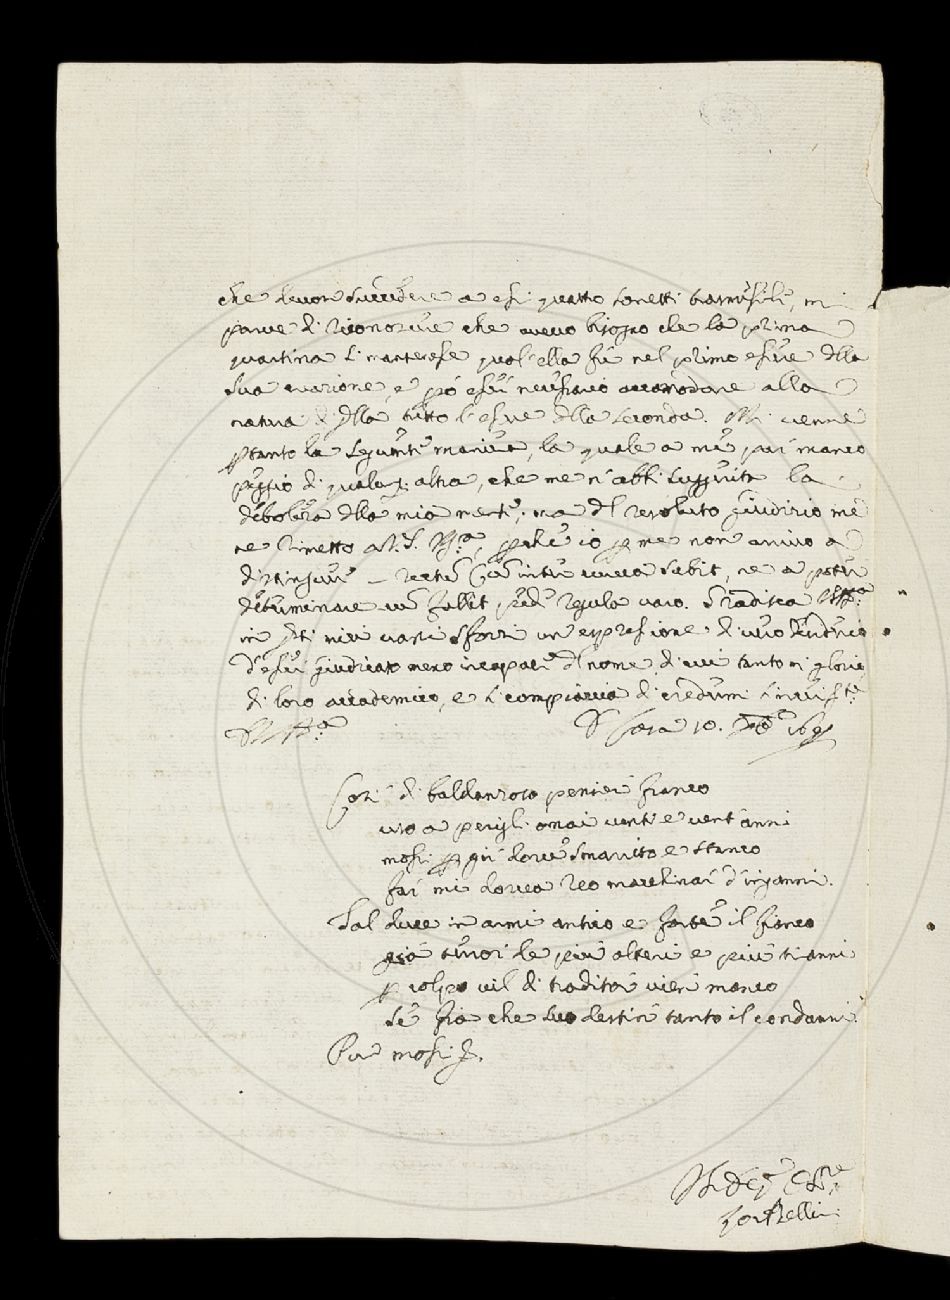 che devon succedere a essi quatto sonetti trasmisile, mi
parve di riconoscere che avevo bisogno che la prima
quartina si mantenesse qual'ella fu nel primo essere della
sua creazione, e pò esser necessario accomodare alla
natura di qlla tutto l'essere della seconda. Mi venne
ptanto la seguente maniera, la quale a me par manco
peggio di qualunq; altra, che me n'abbi suggerita la
debolezza della mia mente; ma del resoluto giudizio me
ne rimetto a V.S. Ill.ma, pche io p me non arrivo a
distinguere recta, ne a poter
determinare regula varo. Gradisca V.S. Ill.ma
in qti miei vari sforzi un espressione di vero
d'esser giudicato meno incapace del nome, di cui tanto mi glorio,
di loro accademico, e si compiaccia di credermi
Di Casa 10.
Così di baldanzoso pensier franco
uso a perigli omai venti e vent'anni
mossi p gir dove smarrito e stanco
far mi dovea reo machinar d'inganni.
Tal duce in armi antico e forte il fianco
già terror de più alteri e più tiranni
p colpo vil di traditor vien manco
se fia che suo destin tanto il condanni.
Pur mossi &.